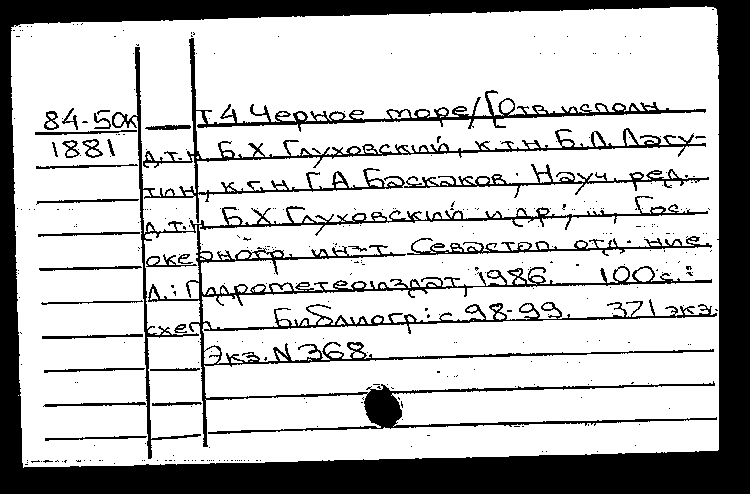 84-50к
1881
Т.4. Черное море/[Отв. исполн.
д.т.н. Б.Х. Глуховский, к.т.н. Б.Л. Лагу-
тин, к.г.н. Г.А. Баскаков; Науч. ред.
д.т.н. Б.Х. Глуховский и др.; Гос.
океаногр. ин-т. Севастоп. отд-ние.
Л.: Гидрометеоиздат, 1986. 100с.:
схем. Библиогр.: с. 98-99. 371 экз.
Экз. N 368.